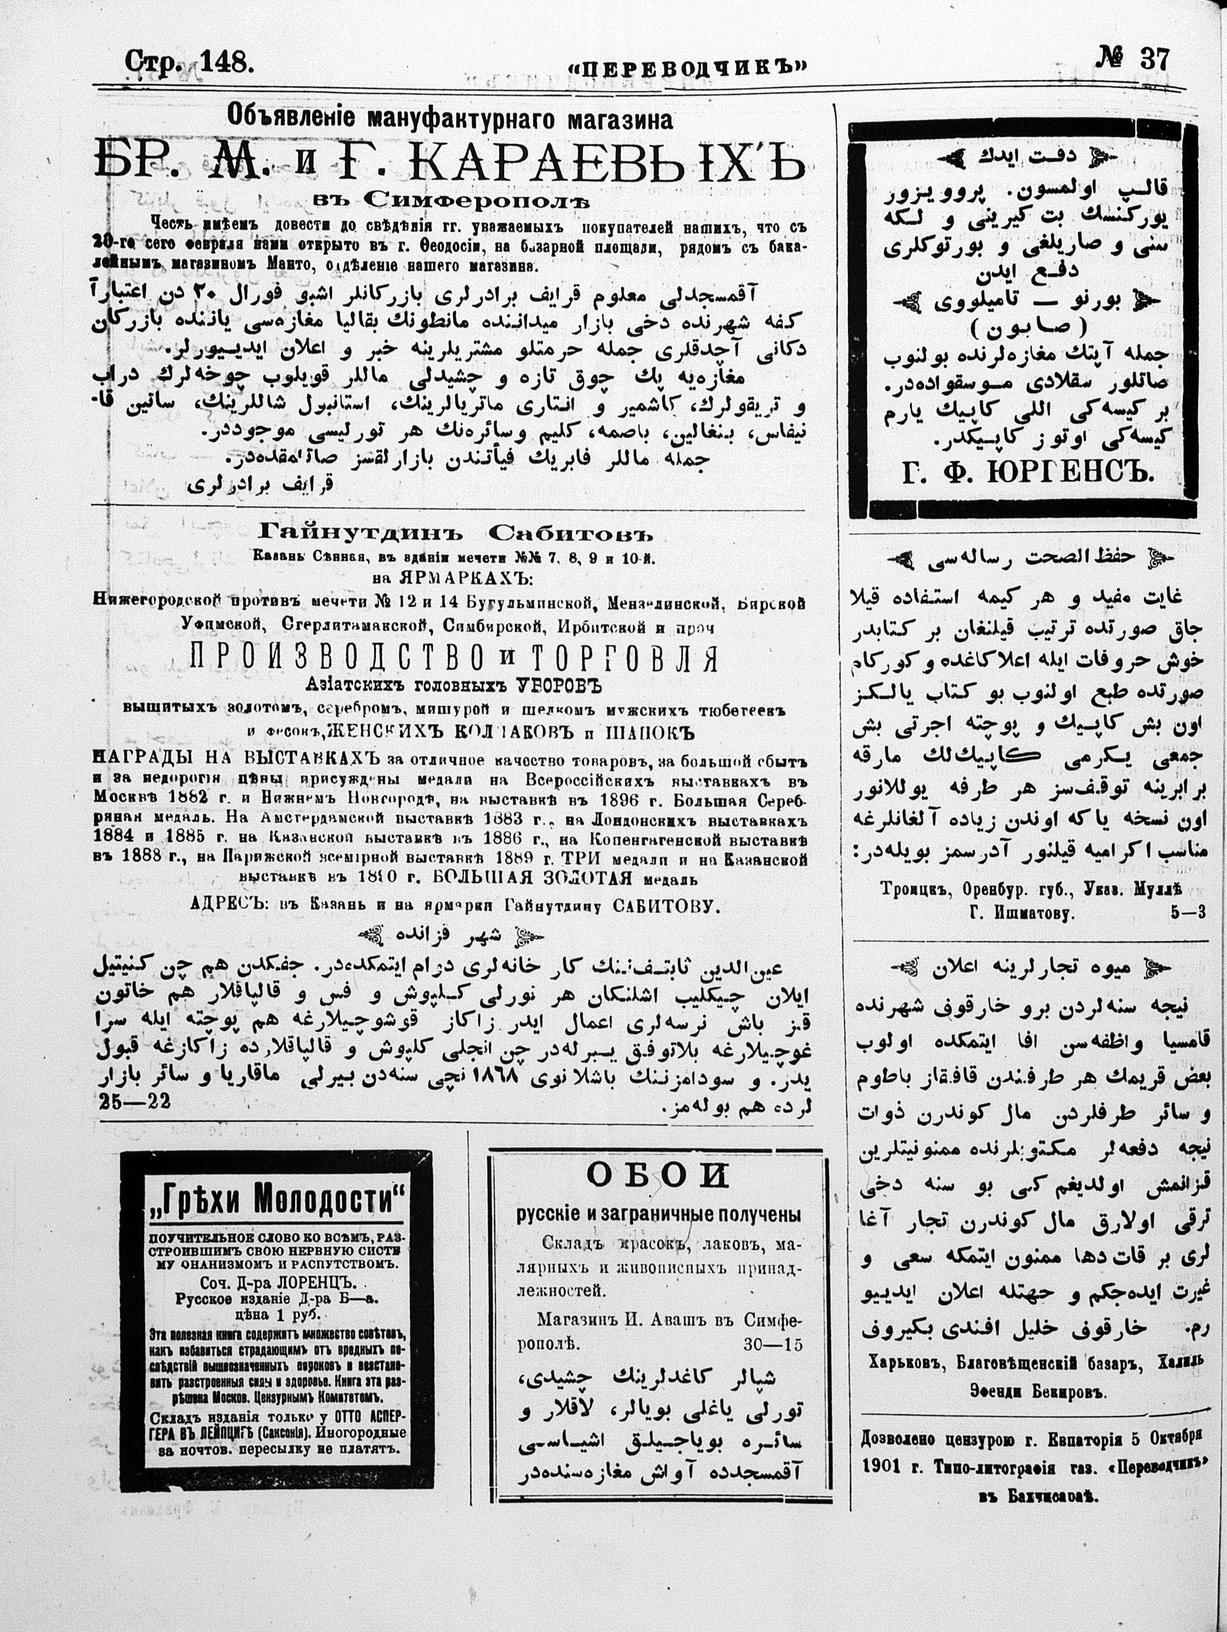 Стр. 148.
«ПЕРЕВОДЧИКЪ»
№ 37
Объявленіе мануфактурнаго магазина
БР. М. и Г. КАРАЕВЫХЪ
въ Симферополѣ
Честь имѣемъ довести до свѣдѣнія гг. уважаемыхъ покупателей нашихъ, что съ
20-го сего февраля нами открыто въ г. Ѳеодосіи, на базарной площади, рядомъ съ бака-
лейнымъ магазиномъ Манто, отдѣленіе нашего магазина.
آقمسجدلی معلوم قرایف برادرلری بازرکانلر اشبو فورال ٢٠ دن اعتباراً
کفه شهرنده دخی بازار میداننده مانطونك بقالیا مغازه‌سی یاننده بازرکان
دکانی آچدقلری جمله حرمتلو مشتریلرینه خبر و اعلان ایدییورلر.
مغازه‌یه پك چوق تازه و چشیدلی ماللر قویلوب چوخه‌لرك دراپ
و تریقولرك، کاشمیر و انتاری ماتریالرینك، استانبول شاللرینك، ساتین قا-
نیفاس، بنغالین، باصمه، کلیم وسائره‌نك هر تورلیسی موجوددر.
جمله ماللر فابریك فیأتندن بازارلقسز صاتلمقده‌در.
قرایف برادرلری
Гайнутдинъ Сабитовъ
Казань Сѣнная, въ зданіи мечети №№ 7, 8, 9 и 10-й.
на ЯРМАРКАХЪ:
Нижегородской противъ мечети № 12 и 14 Бугульминской, Мензелинской, Бирской
Уфимской, Стерлитамакской, Симбирской, Ирбитской и проч
ПРОИЗВОДСТВО и ТОРГОВЛЯ
Азіатскихъ головныхъ УБОРОВЪ
вышитыхъ золотомъ, серебромъ, мишурой и шелкомъ мужскихъ тюбетеекъ
и фесокъ, ЖЕНСКИХЪ КОЛПАКОВЪ и ШАПОКЪ
НАГРАДЫ НА ВЫСТАВКАХЪ за отличное качество товаровъ, за большой сбытъ
и за недорогія цѣны присуждены медали на Всероссійскихъ выставкахъ въ
Москвѣ 1882 г. и Нижнемъ Новгородѣ, на выставкѣ въ 1896 г. Большая Сереб-
ряная медаль. На Амстердамской выставкѣ 1883 г., на Лондонскихъ выставкахъ
1884 и 1885 г. на Казанской выставкѣ въ 1886 г., на Копенгагенской выставкѣ
въ 1888 г., на Парижской всемірной выставкѣ 1889 г. ТРИ медали и на Казанской
выставкѣ въ 1890 г. БОЛЬШАЯ ЗОЛОТАЯ медаль
АДРЕСЪ: въ Казань и на ярмарки Гайнутдину САБИТОВУ.
شهر قزانده
عین‌الدین ثابتفننك کار خانه‌لری دوام ایتمکده‌در. جفکدن هم چن کنیتیل
ایلان چیکلیب اشلنکان هر تورلی کلپوش و فس و قالپاقلار هم خاتون
قز باش نرسه‌لری اعمال ایدر زاکاز قوشوچیلارغه هم پوچته ایله سرا
غوچیلارغه بلاتوفق یبرله‌در چن انجلی کلپوش و قالپاقلارده زاکازغه قبول
یدر. و سودامزننك باشلانوی ١٨٦٨ نچی سنه‌دن بیرلی ماقاریا و سائر بازار
لرده هم بوله‌مز.
25—22
„Грѣхи Молодости“
ПОУЧИТЕЛЬНОЕ СЛОВО КО ВСѢМЪ, РАЗ-
СТРОИВШИМЪ СВОЮ НЕРВНУЮ СИСТЕ
МУ ОНАНИЗМОМЪ И РАСПУТСТВОМЪ.
Соч. Д-ра ЛОРЕНЦЪ.
Русское изданіе Д-ра Б—а.
цѣна 1 руб.
Эта полезная книга содержитъ множество совѣтовъ,
какъ избавиться страдающимъ отъ вредныхъ по-
слѣдствій вышеозначенныхъ пороковъ и возстано-
вить разстроенныя силы и здоровье. Книга эта раз-
рѣшена Москов. Цензурнымъ Комитетомъ.
Складъ изданія только у ОТТО АСПЕР-
ГЕРА ВЪ ЛЕЙПЦИГѢ (Саксонія). Иногородные
за почтов. пересылку не платятъ.
ОБОИ
русскіе и заграничные получены
Складъ красокъ, лаковъ, ма-
лярныхъ и живописныхъ принад-
лежностей.
Магазинъ И. Авашъ въ Симфе-
рополѣ. 30—15
شپالر کاغدلرینك چشیدی،
تورلی یاغلی بویالر، لاقلار و
سائره بویاجیلق اشیاسی
آقمسجدده آواش مغازه‌سنده‌در
دقت ایدك
قالپ اولمسون. پروویزور
یورکنسك بت کیرینی و لسکه
سنی و صاریلغی و بورتوکلری
دفع ایدن
بورنو — تامیلووی
(صابون)
جمله آپتك مغازه‌لرنده بولنوب
صاتلور سقلادی موسقواده‌در.
بر کیسه‌کی اللی کاپیك یارم
کیسه‌کی اوتوز کاپیکدر.
Г. Ф. ЮРГЕНСЪ.
حفظ الصحت رساله‌سی
غایت مفید و هر کیمه استفاده قیلا
جاق صورتده ترتیب قیلنغان بر کتابدر
خوش حروفات ایله اعلا کاغده و کورکام
صورتده طبع اولنوب بو کتاب یالکز
اون بش کاپیك و پوچته اجرتی بش
جمعی یکرمی کاپیك‌لك مارقه
برابرینه توقف‌سز هر طرفه یوللانور
اون نسخه یاکه اوندن زیاده آلغانلرغه
مناسب اکرامیه قیلنور آدرسمز بویله‌در:
Троицкъ, Оренбур. губ., Указ. Муллѣ
Г. Ишматову. 5—3
میوه تجارلرینه اعلان
نیجه سنه‌لردن برو خارقوف شهرنده
قامسیا واظفه‌سن افا ایتمکده اولوب
بعض قریمك هر طرفندن قافقاز باطوم
و سائر طرفلردن مال کوندرن ذوات
نیجه دفعه‌لر مکتوبلرنده ممنونیتلرین
قزانمش اولدیغم کبی بو سنه دخی
ترقی اولارق مال کوندرن تجار آغا
لری بر قات دها ممنون ایتمکه سعی و
غیرت ایده‌جکم و جهتله اعلان ایدییو
رم. خارقوف خلیل افندی بکیروف
Харьковъ, Благовѣщенскій базаръ, Халиль
Эфенди Бекировъ.
Дозволено цензурою г. Евпаторія 5 Октября
1901 г. Типо-литографія газ. «Переводчикъ»
въ Бахчисараѣ.